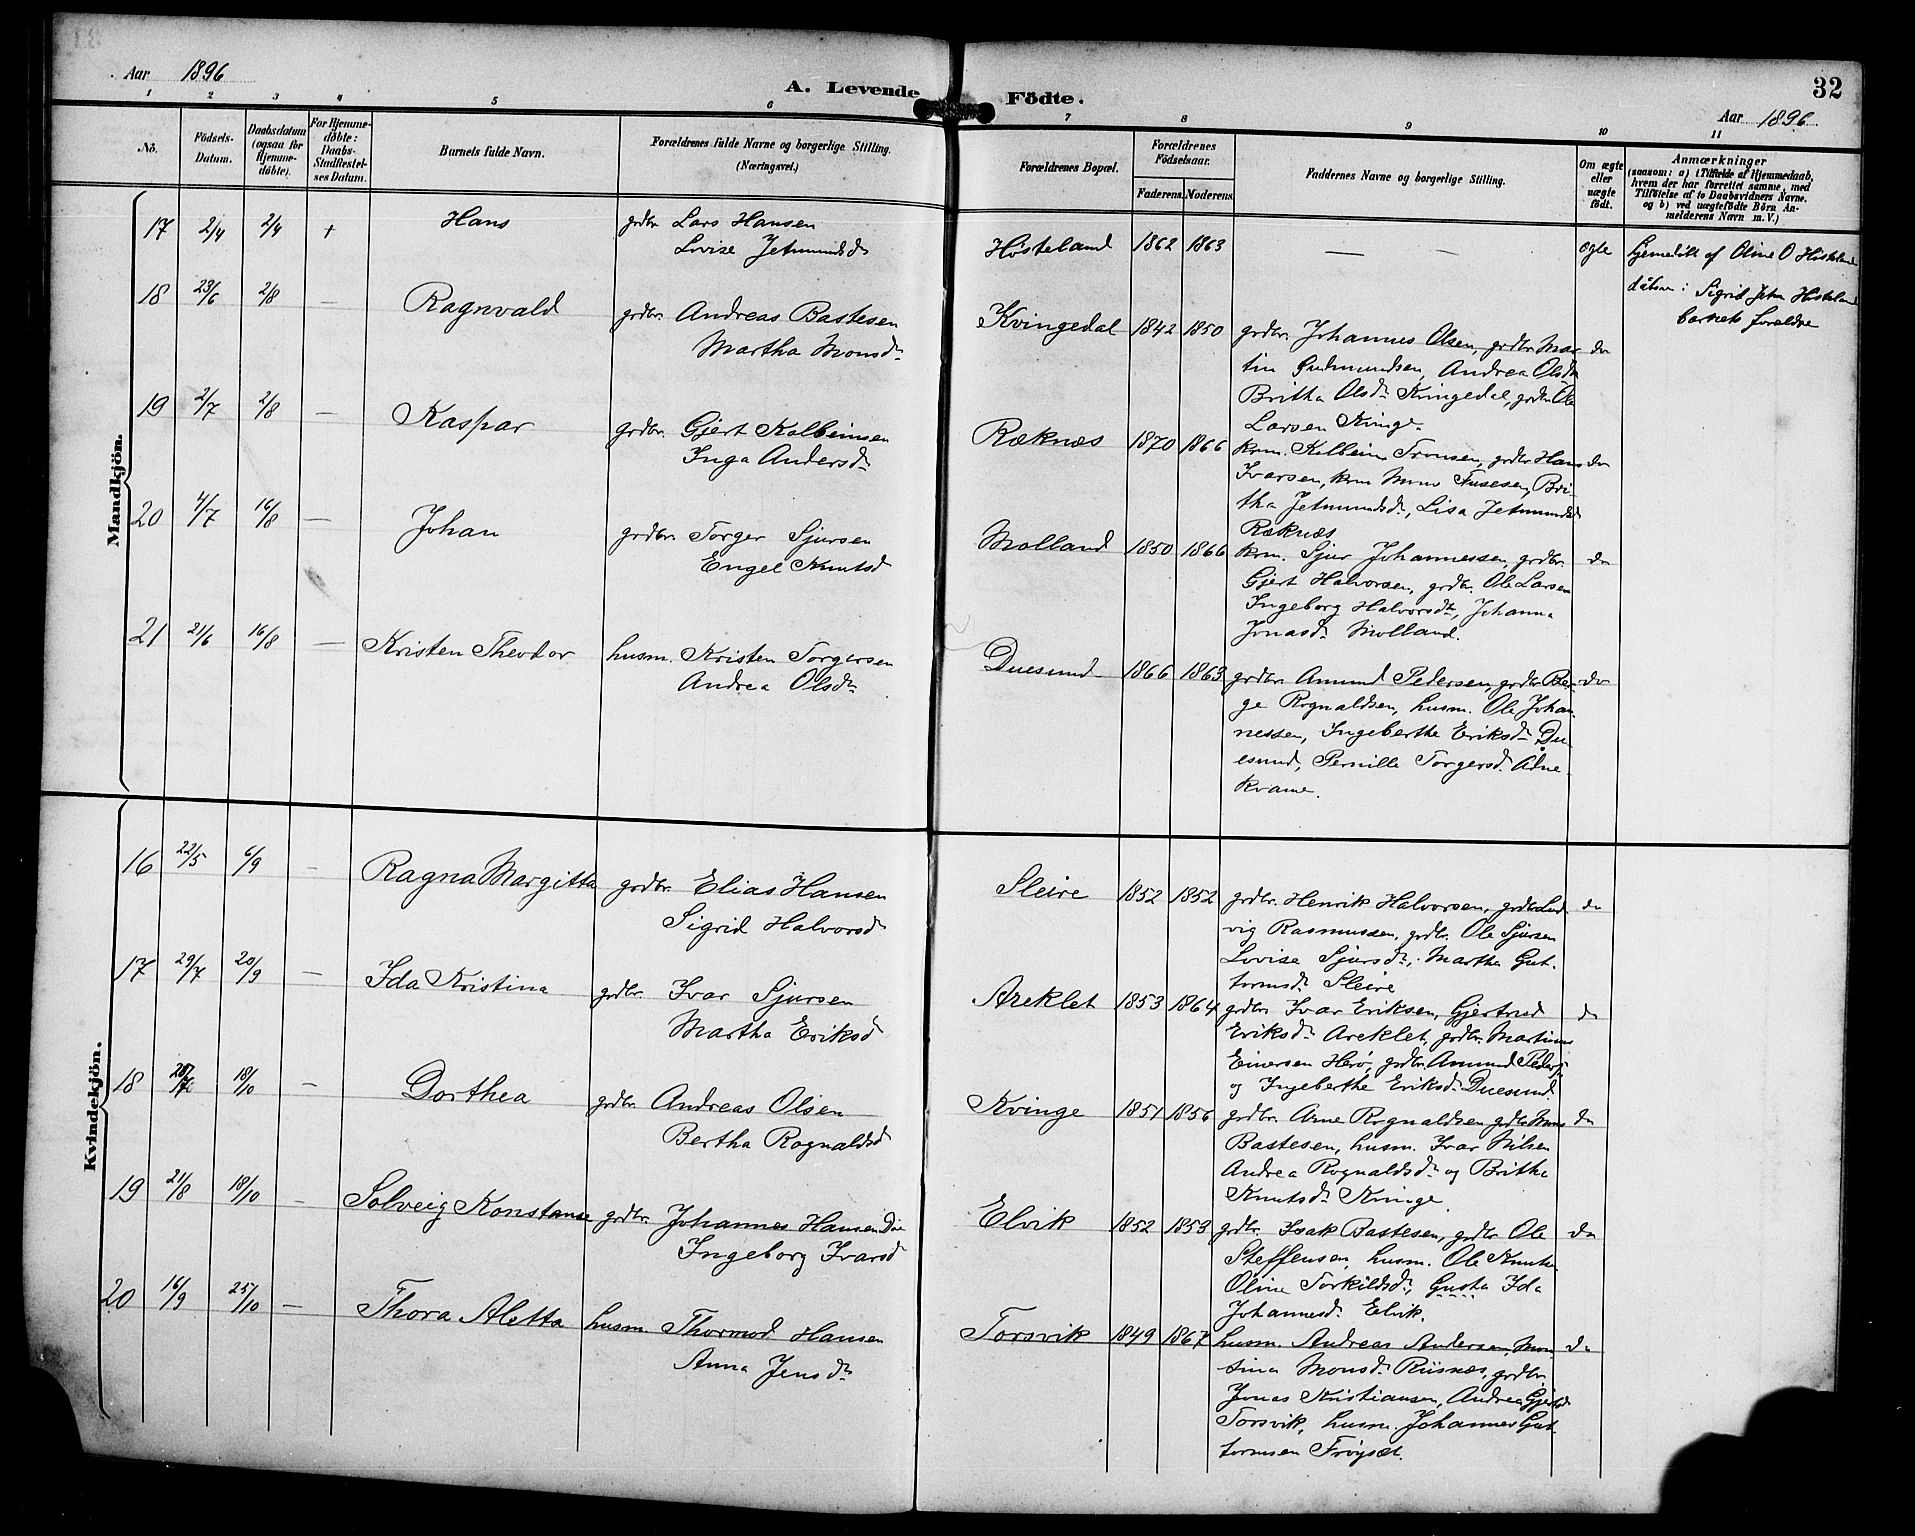 Aar 1896
A. Levende Födte.
32
Aar 1896
1 2 3 4 5 6 7 8 9 10 11
No.
Födsels-Datum.
Daabsdatum (ogsaa for Hjemme-döbte).
For Hjemme-döbte: Daabs-Stadfæstel-ses Datum.
Barnets fulde Navn.
Forældrenes fulde Navne og borgerlige Stilling. (Næringsvei.)
Forældrenes Bopæl.
Forældrenes Födselsaar.
Faderens. Moderens.
Faddernes Navne og borgerlige Stilling.
Om ægte eller uægte födt.
Anmærkninger
(saasom: a) i Tilfælde af Hjemmedaab,
hvem der har forrettet samme, med
Tilföielse af to Daabsvidners Navne.
og b) ved uægtefödte Börn An-
melderens Navn m. V.)
Mandkjön.
17 2/4 2/4 + Hans grdbr. Lars Hansen
Lovise Jetmundsdr
Hosteland 1862 1863 — — egte
Hjemedöbt af Oline O Hosteland
dåbsv: Sigrid Jetm Hosteland
barnets forældre
18 23/6 2/8 — Ragnvald grdbr. Andreas Bastesen
Martha Monsdr
Kvingedal 1842 1850 grdbr. Johannes Olsen, grdbr. Mar- do
tin Gudmundsen, Andrea Olsdr
Britha Olsdr Kvingedal, grdbr. Ole
Larsen Kvinge.
19 2/7 2/8 — Kaspar grdbr. Gjert Kolbeinsen
Inga Andersdr
Ræknæs 1870 1866 krm. Kolbein Tronsen, grdbr. Hans do
Ivarsen, krm Mons Tusesen, Bri-
tha Jetmundsdr, Lisa Jetmundsdr
Ræknæs
20 4/7 16/8 — Johan grdbr. Torger Sjursen
Engel Knutsd
Molland 1850 1866 krm. Sjur Johannessen, grdbr. do
Gjert Halvorsen, grdbr. Ole Larsen
Ingeborg Halvorsdr, Johanna
Jonasdr Molland.
21 21/6 16/8 — Kristen Theodor husm. Kristen Torgersen
Andrea Olsdr
Duesund 1866 1863 grdbr. Amund Pedersen, grdbr. Bør- do
ge Rognaldsen, husm. Ole Johan-
nessen, Ingeberthe Eriksdr Du-
esund, Pernille Torgersd. Ådne-
kvame.
Kvindekjön.
16 22/5 6/9 — Ragna Margitta grdbr. Elias Hansen
Sigrid Halvorsd
Sleire 1852 1852 grdbr. Henrik Halvorsen, grdbr. Lud- do
vig Rasmussen, grdbr. Ole Sjursen
Lovise Sjursdr, Martha Gut-
tormsdr Sleire
17 29/7 20/9 — Ida Kristina grdbr. Ivar Sjursen
Martha Eriksd
Areklet 1853 1864 grdbr. Ivar Eriksen, Gjertrud do
Eriksdr Areklet, grdbr. Martinus
Einersen Herø, grdbr. Amund Peders.
og Ingeberthe Eriksdr Duesund.
18 20/7 18/10 — Dorthea grdbr. Andreas Olsen
Bertha Rognaldsd
Kvinge 1851 1856 grdbr. Arne Rognaldsen grdbr. Mons do
Bastesen, husm. Ivar Nilsen
Andrea Rognaldsdr og Britha
Knutsdr Kvinge.
19 21/8 18/10 — Solveig Konstanse grdbr. Johannes Hansen Due
Ingeborg Ivarsd
Elvik 1852 1853 grdbr. Isak Bastesen, grdbr Ole do
Steffensen, husm. Ole Knuts.
Oline Torkildsdr, Gusta Ida
Johannesdr Elvik.
20 16/9 25/10 — Thora Aletta husm Thormod Hansen
Anna Jensdr
Torsvik 1849 1867 husm. Andreas Andersen, Mon- do
sina Monsdr Risnes, grdbr.
Jonas Kristiansen, Andrea Gjertsdr
Torsvik, husm. Johannes Gut-
tormsen Frøyset.